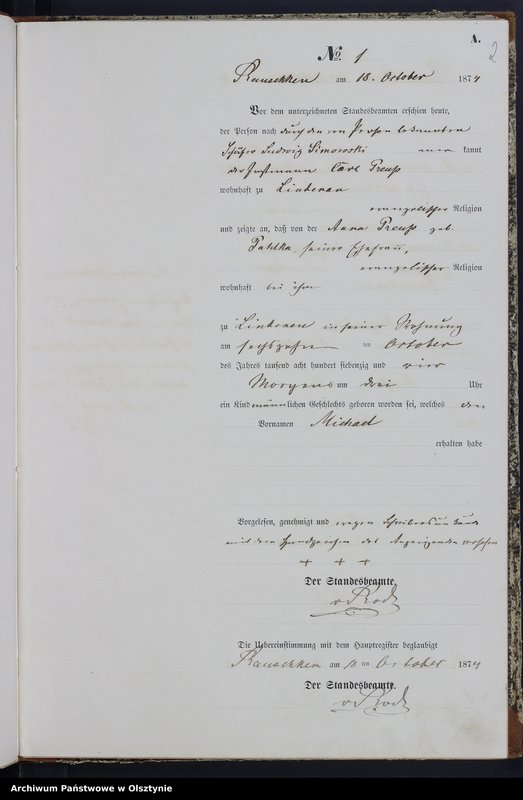 A.
2
No. 1
Rauschken am 18. October 1874
Vor dem unterzeichneten Standesbeamten erschien heute,
der Person nach durch den von Person bekannten
Ludwig Simorowski kannt
der Carl Preuß
wohnhaft zu Lindenau
evangelischer Religion
und zeigte an, daß von der Anna Preuß geb.
seiner Ehefrau,
evangelischer Religion
wohnhaft bei ihm
zu Lindenau in seiner Wohnung
am sechszehn ten October
des Jahres tausend acht hundert siebenzig und vier
Morgens um drei Uhr
ein Kind männlichen Geschlechts geboren worden sei, welches den
Vornamen Michael
erhalten habe
Vorgelesen, genehmigt und wegen Schreibensunkunde
mit dem Handzeichen des Anzeigenden versehen
+ + +
Der Standesbeamte.
Die Uebereinstimmung mit dem Hauptregister beglaubigt
Rauschken am 18 ten October 1874
Der Standesbeamte.
Archiwum Państwowe w Olsztynie